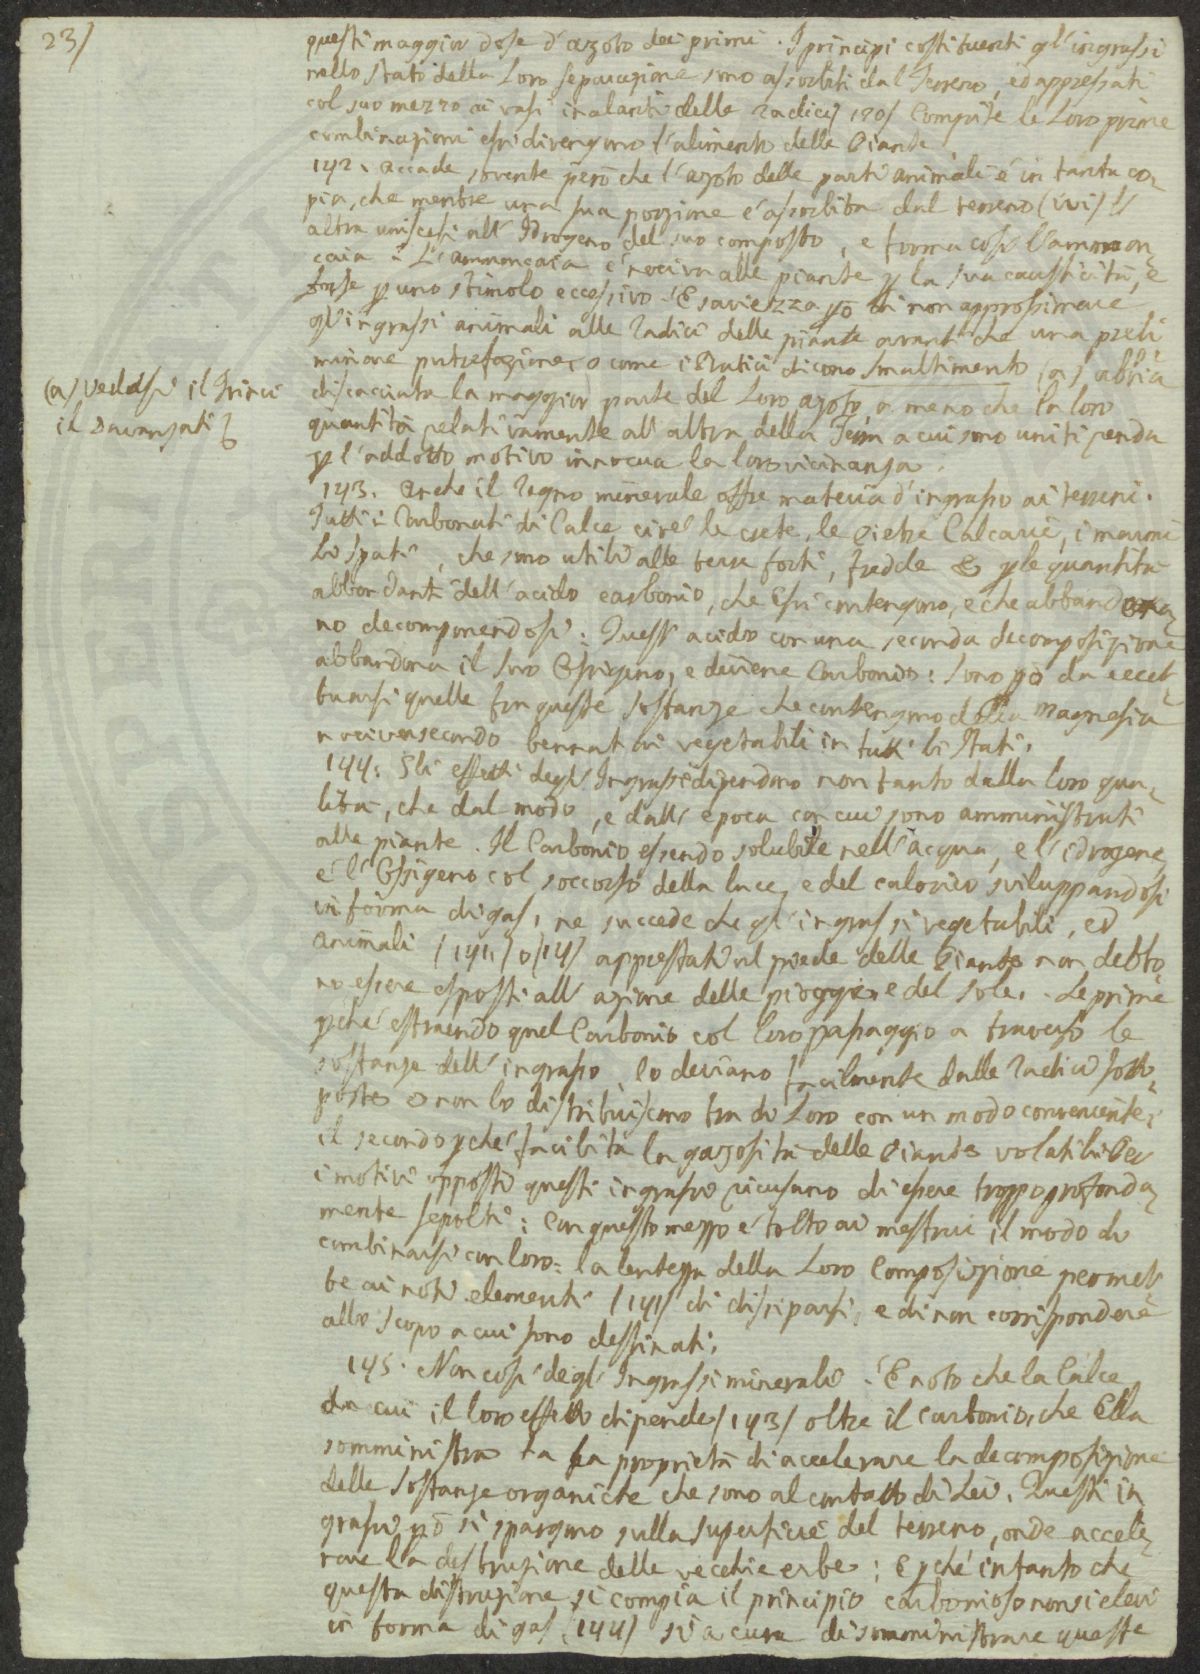 23/
questi maggior dose d'azoto dei primi. I principi costituenti gl'ingrassi
nello stato della Loro separazione sono assorbiti dal Terreno, ed appressati
col suo mezzo ai vasi inalanti delle radici, 120/ Compite le Loro prime
combinazioni essi divengono l'alimento delle Piante.
142. Accade sovente però che l'azoto delle parti animali è in tanta co-
pia, che mentre una sua porzione è assorbita dal terreno (ivi) l'
altra uniscesi all'Idrogeno del suo composto, e forma così l'ammon-
caia. L'ammoncaia è nociva alle piante p la sua causticità, e
forse p uno stimolo eccessivo. È saviezza pò di non approssimare
gl'ingrassi animali alle radici delle piante avanti che una preli-
minare putrefazione, o come i Pratici dicono smaltimento (a) abbia
discacciata la maggior parte del Loro azoto, a meno che la loro
quantità relativamente all'altra della Terra a cui sono uniti renda
p l'addotto motivo innocua la loro vicinanza.
(a) Vedasi il Trinci
il Davanzati &
143. Anche il Regno minerale offre materia d'ingrasso ai terreni.
Tutti i Carbonati di Calce cioè le crete, le Pietre Calcarie, i marmi
li spati, che sono utili alle terre forti, fredde & p le quantità
abbondanti dell'acido carbonio, che Essi contengono, e che abbandona-
no decomponendosi: Quest'acido con una seconda decomposizione
abbandona il suo Ossigeno, e diviene Carbonio: Sono pò da eccet-
tuarsi quelle fra queste sostanze che contengono della Magnesia
nociva secondo ai vegetabili in tutti li Stati.
144. Gli effetti degl'Ingrassi dipendono non tanto dalla loro qua-
lità, che dal modo, e dall'epoca con cui sono amministrati
alle piante. Il Carbonio essendo solubile nell'acqua, e l'idrogene,
e l'Ossigeno col soccorso della luce, e del calorico sviluppandosi
in forma di gas, ne succede che gl'ingrassi vegetabili, ed
animali /141/ appressati al piede delle Piante non debbo-
no essere esposti all'azione delle pioggie, e del sole. Le prime
pchè estraendo quel Carbonio col loro passaggio a traverso le
sostanze dell'ingrasso, lo deviano facilmente dalle radici sotto-
poste, o non lo distribuiscono tra di Loro con un modo conveniente;
il secondo pchè facilita la gazosità delle Piante volatili. Per
i motivi opposti questi ingrassi ricusano di essere troppo profonda-
mente sepolti: Con questo mezzo è tolto ai mestrui il modo di
combinarsi con loro: la lentezza della Loro Composizione permet-
te ai noti elementi /141/ di disiparsi, e di non corrispondere
allo scopo a cui sono destinati.
145. Non così degl'Ingrassi minerali. È noto che la Calce,
da cui il loro effetto dipende /143/ oltre il carbonio, che Ella
somministra ha la proprietà di accelerare la decomposizione
delle sostanze organiche che sono al contatto di Lei. Questi in-
grassi pò si spargono sulla superficie del terreno, onde accele-
rare la distruzione delle vecchie erbe; E pchè intanto che
questa distruzione si compia il principio carbonioso non si elevi
in forma di gas /144/ si a cura di somministrare queste